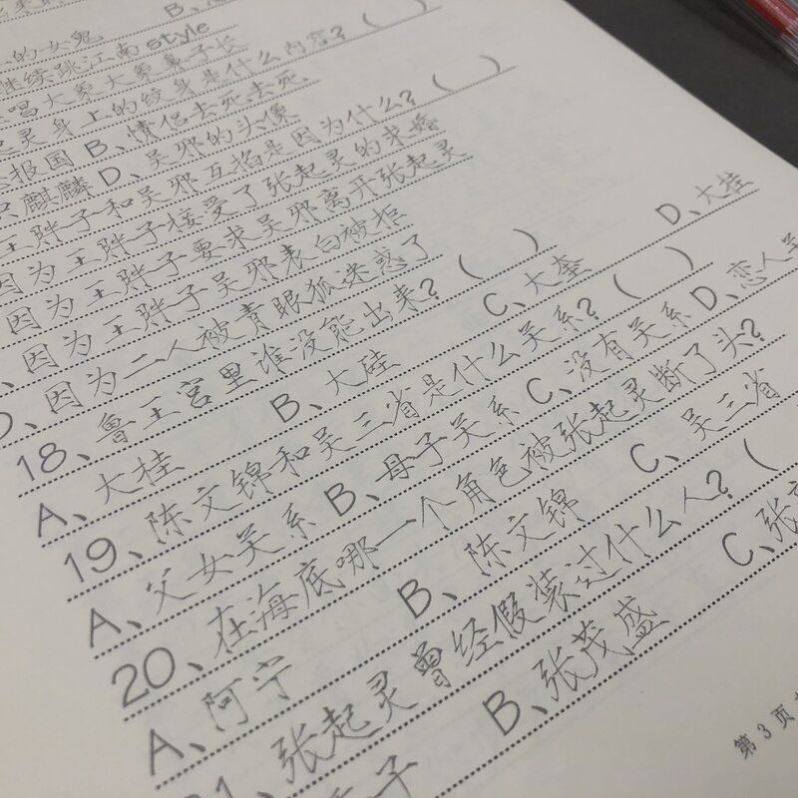 B、
的女鬼
继续跳江南style
唱大象大象鼻子长
灵身上的纹身是什么内容？（ ）
报国 B、情侣去死去死
麒麟 D、吴邪的头像
王胖子和吴邪互掐是因为什么？（ ）
因为王胖子接受了张起灵的求婚
因为王胖子要求吴邪离开张起灵
、因为王胖子吴邪表白被拒
D、因为二人被青眼狐迷惑了
18、鲁王宫里谁没能出来？（ ）
A、大桂 B、大硅 C、大奎 D、大挂
19、陈文锦和吴三省是什么关系？（ ）
A、父女关系 B、母子关系 C、没有关系 D、恋人关
20、在海底哪一个角色被张起灵断了头？
A、阿宁 B、陈文锦 C、吴三省
1、张起灵曾经假装过什么人？（
子 B、张茂盛 C、张
第 3 页